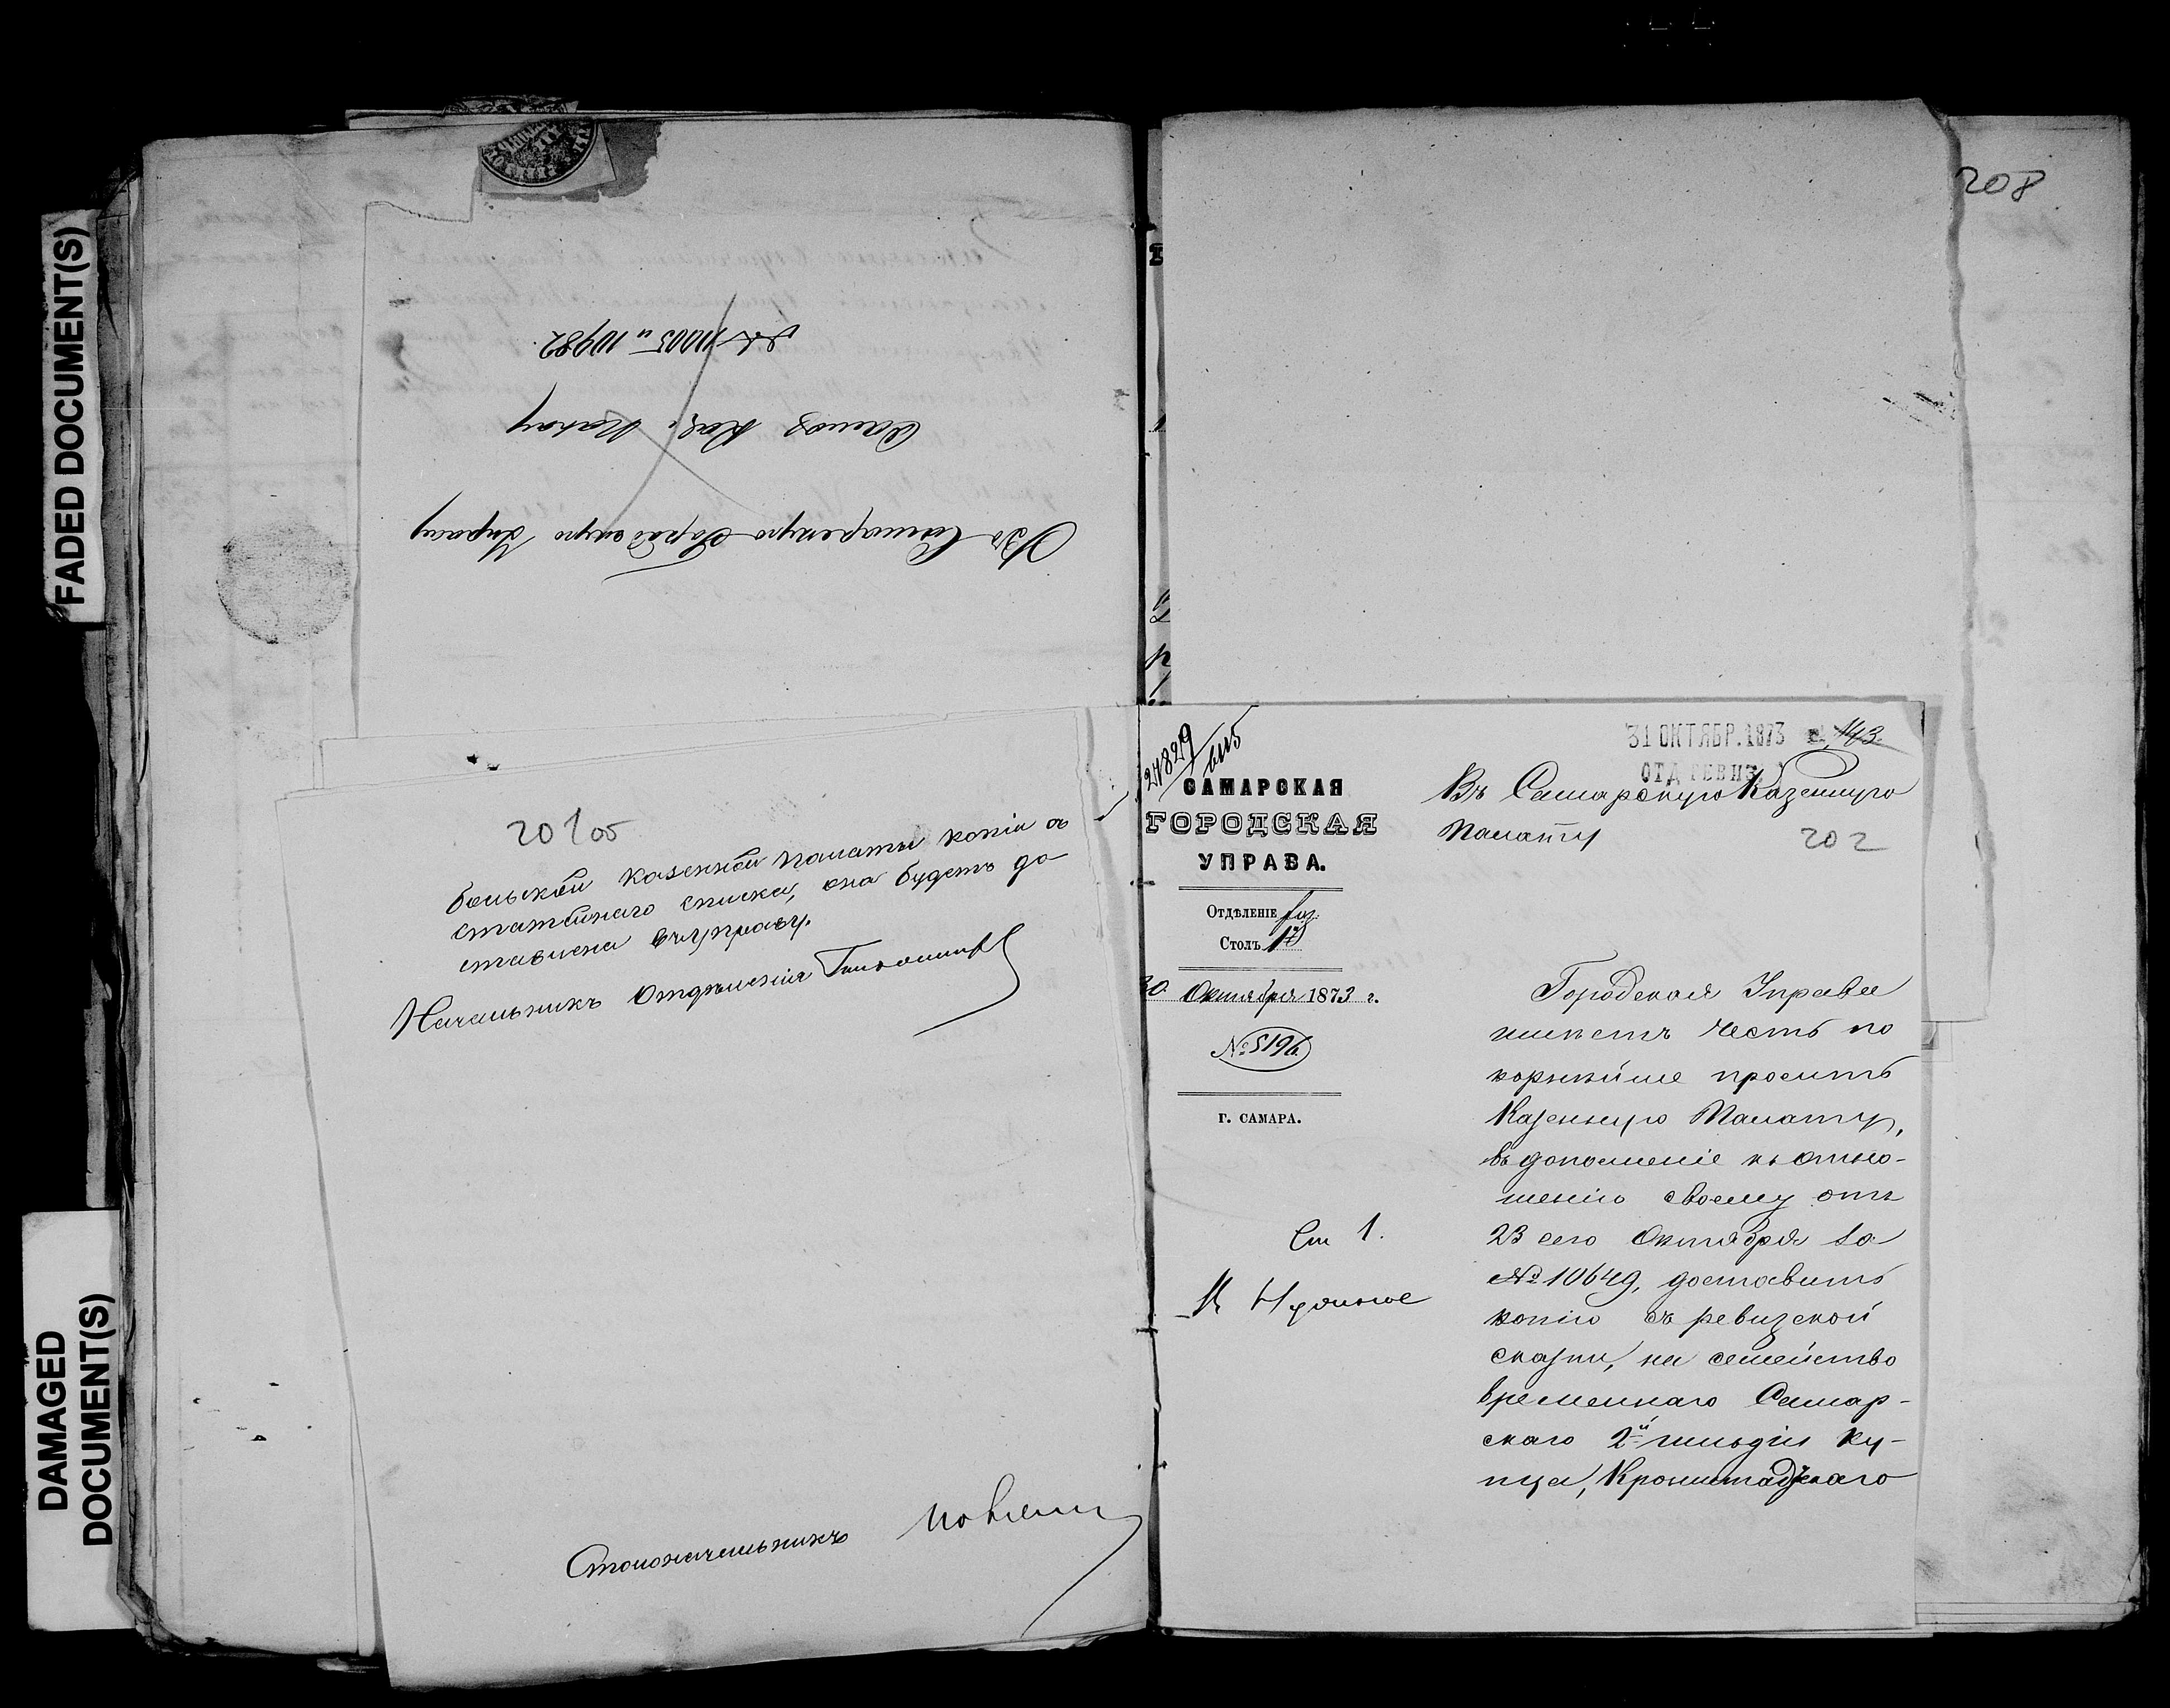 FADED DOCUMENT(S)
DAMAGED
DOCUMENT(S)
208
Въ Самарскую Городскую Управу
Самар Каз. Палату
№№ 11005 и 10982
201 об
больской казенной палаты копіи съ
статейнаго списка, она будетъ до-
ставлена въ управу.
Начальникъ Отдѣленія
Столоначальникъ
24829
САМАРСКАЯ
ГОРОДСКАЯ
УПРАВА.
Отдѣленіе
Столъ 1й
30 Октября 1873 г.
№ 5196
Г. САМАРА.
Ст 1.
31 ОКТЯБР. 1873
ОТД РЕВИЗ.
Въ Самарскую Казенную
Палату
202
Городская Управа
имѣетъ честь по
корнѣйше просить
Казенную Палату,
въ дополненіе къ отно-
шенію своему отъ
23 сего Октября за
№ 10649, доставить
копію съ ревизской
сказки, на семейство
временнаго Самар-
скаго 2й гильдіи ку-
пца, Кронштадскаго